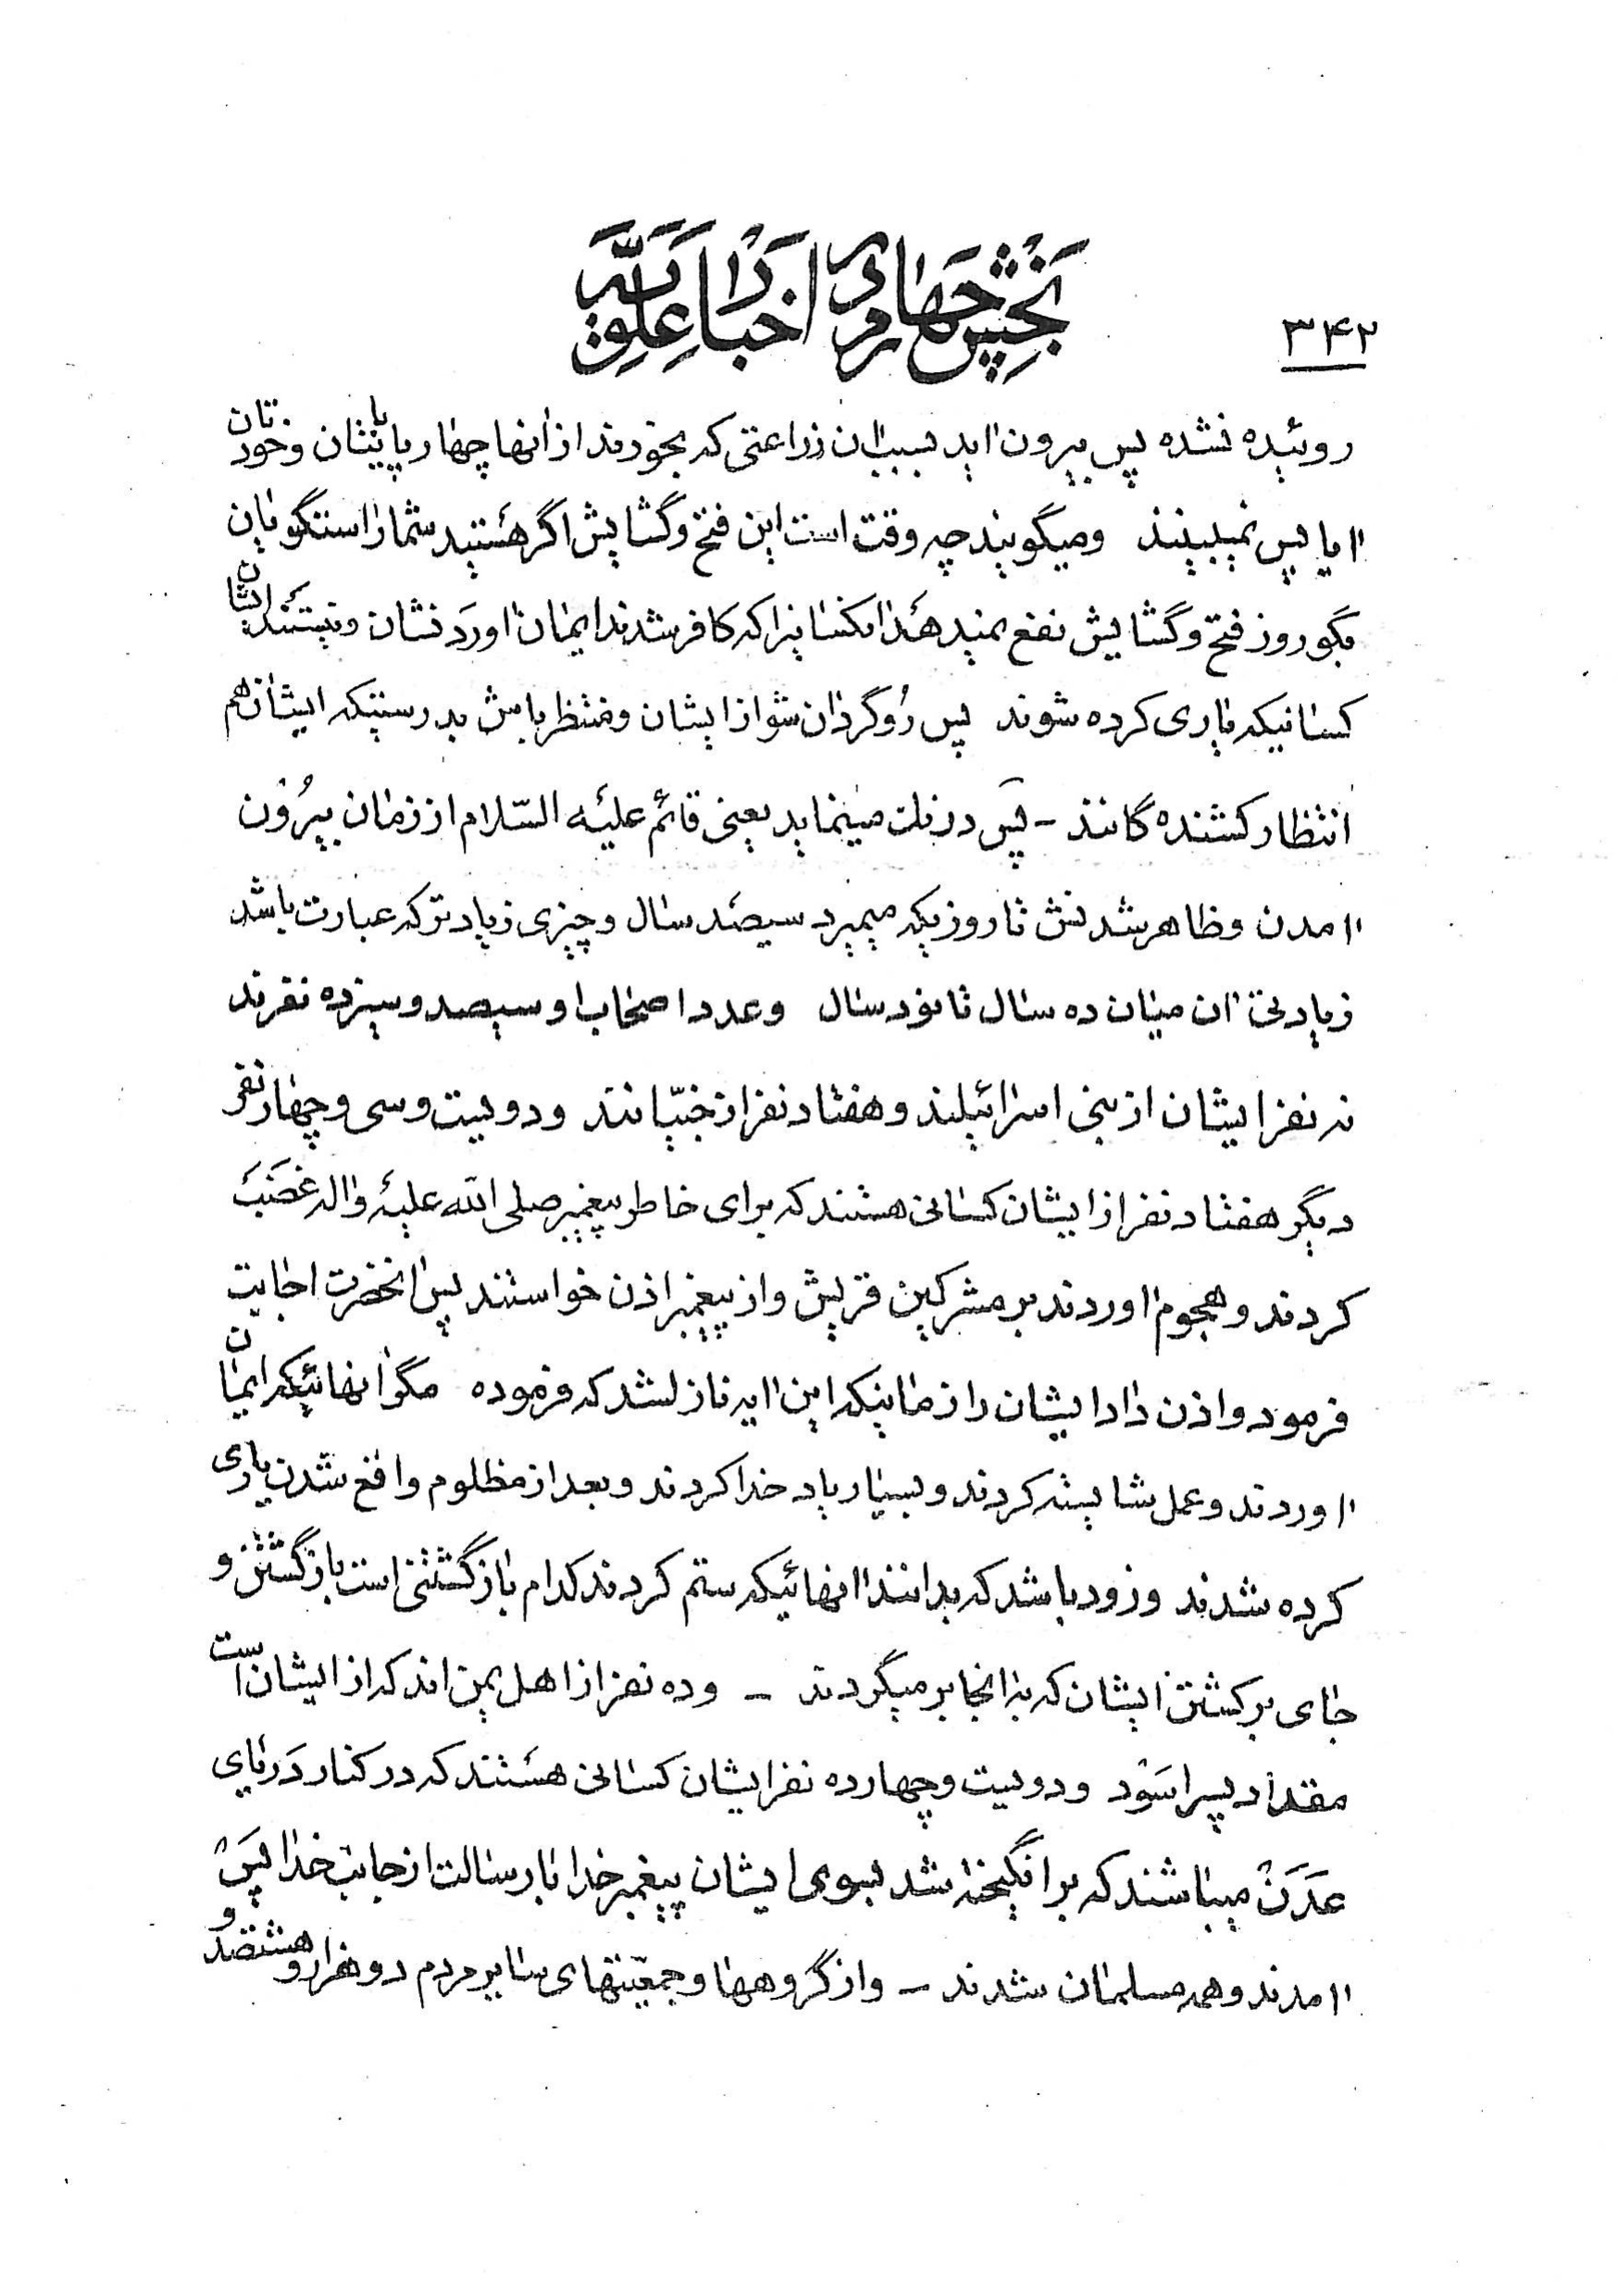 بخش چهارم در اخبار علویه
۳۴۲
روئیده نشده پس بیرون اید بسبب ان زراعتی که بخورند از انها چهار پایانشان و خودتان
ایا پس نمیبینند و میگویند چه وقت است این فتح و گشایش اگر هستید شما راستگویان
بگو روز فتح و گشایش نفع نمیدهد انکسانیرا که کافر شدند ایمان اوردنشان و نیستند ایشان
کسانیکه یاری کرده شوند پس روگردان شو از ایشان و منتظر باش بدرستیکه ایشان هم
انتظار کشنده گانند - پس درنک مینماید یعنی قائم علیه السّلام از زمان بیرون
امدن و ظاهر شدنش تا روزیکه میمیرد سیصد سال و چیزی زیادتر که عبارت باشد
زیادتی ان میان ده سال تا نود سال و عدد اصحاب او سیصد و سیزده نفرند
نه نفر ایشان از بنی اسرائیلند و هفتاد نفر از جنّیانند و دویست و سی و چهار نفر
دیگر هفتاد نفر از ایشان کسانی هستند که برای خاطر پیغمبر صلی الله علیه واله غضب
کردند و هجوم اوردند بر مشرکین قریش و از پیغمبر اذن خواستند پس انحضرت اجابت
فرمود و اذن داد ایشان را زمانیکه این ایه نازلشد که فرموده مگر انهائیکه ایمان
اوردند و عمل شایسته کردند و بسیار یاد خدا کردند و بعد از مظلوم واقع شدن یاری
کرده شدند و زود باشد که بدانند انهائیکه ستم کردند کدام بازگشتنی است بازگشتن و
جای برکشتن ایشان که بدانجا برمیگردند - و ده نفر از اهل یمن اند که از ایشان است
مقداد پسر اسود و دویست و چهارده نفر ایشان کسانی هستند که در کنار دریای
عدن میباشند که برانگیخته شد بسوی ایشان پیغمبر خدا با رسالت از جانب خدا پس
امدند و همه مسلمان شدند - و از گروهها و جمعیّتهای سایر مردم دو هزار و هشتصد و